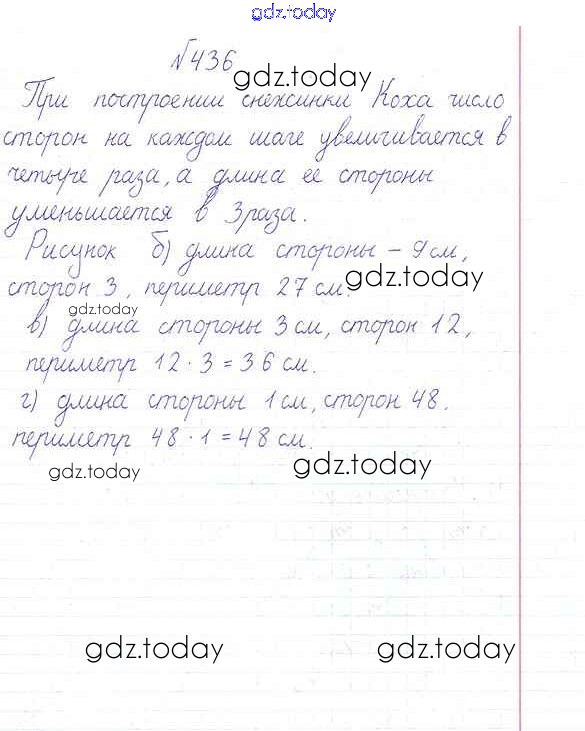 gdz.today
№436
gdz.today
При построении снежинки Коха число
сторон на каждом шаге увеличивается в
четыре раза, а длина ее стороны
уменьшается в 3 раза.
Рисунок б) длина стороны – 9 см,
gdz.today
сторон 3, периметр 27 см.
gdz.today
в) длина стороны 3 см, сторон 12,
периметр 12 · 3 = 36 см.
г) длина стороны 1 см, сторон 48.
периметр 48 · 1 = 48 см.
gdz.today gdz.today
gdz.today gdz.today